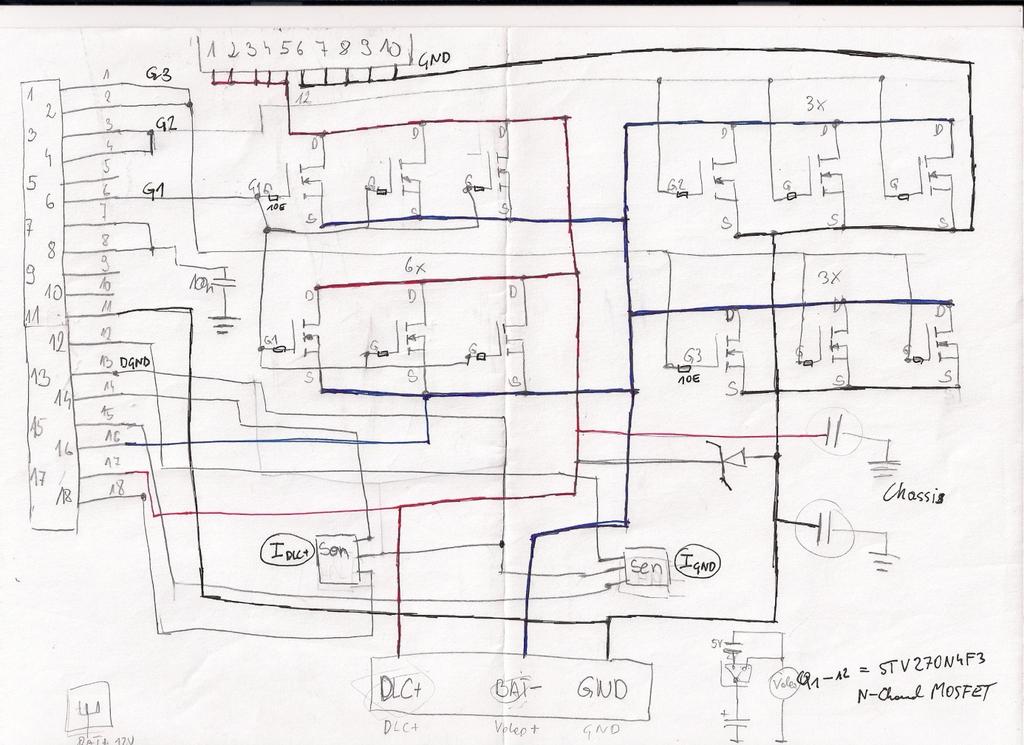 1 2 3 4 5 6 7 8 9 10 GND
12
1 1 G3
2 2
3 3 G2
4 4
5 5
6 6 G1
7 7
8 8
9 9
10 10
11 11
12 12
13 13 DGND
14 14
15 15
16 16
17 17
18 18
100n
D D D
G1 G G
10E
S S S
6x
D D D
G1 G G
S S S
3x
D D D
G2 G G
S S S
3x
D D D
G3 G G
10E
S S S
Chassis
IDLC+ Sen
Sen IGND
DLC+ BAT- GND
DLC+ GND
5V
Q1-12 = STV270N4F3
N-Chanel MOSFET
BAT+ 12V